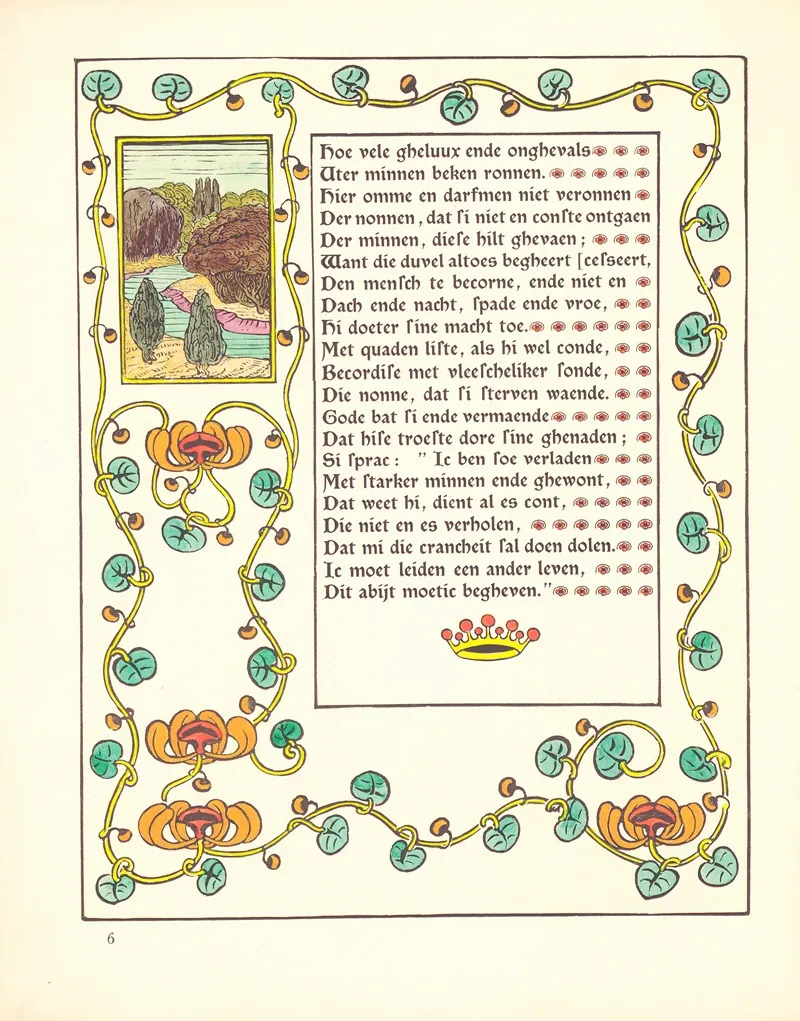 Hoe vele gheluux ende onghevals
Uter minnen beken ronnen.
Hier omme en darfmen niet veronnen
Der nonnen, dat ſi niet en conſte ontgaen
Der minnen, dieſe hilt ghevaen;
Want die duvel altoes begheert [ceſſeert,
Den menſch te becorne, ende niet en
Dach ende nacht, ſpade ende vroe,
Hi doeter ſine macht toe.
Met quaden liſte, als hi wel conde,
Becordiſe met vleeſcheliker ſonde,
Die nonne, dat ſi ſterven waende.
Gode bat ſi ende vermaende
Dat hiſe troeſte dore ſine ghenaden;
Si ſprac: ” Ic ben ſoe verladen
Met ſtarker minnen ende ghewont,
Dat weet hi, dient al es cont,
Die niet en es verholen,
Dat mi die crancheit ſal doen dolen.
Ic moet leiden een ander leven,
Dit abijt moetic begheven.”
6